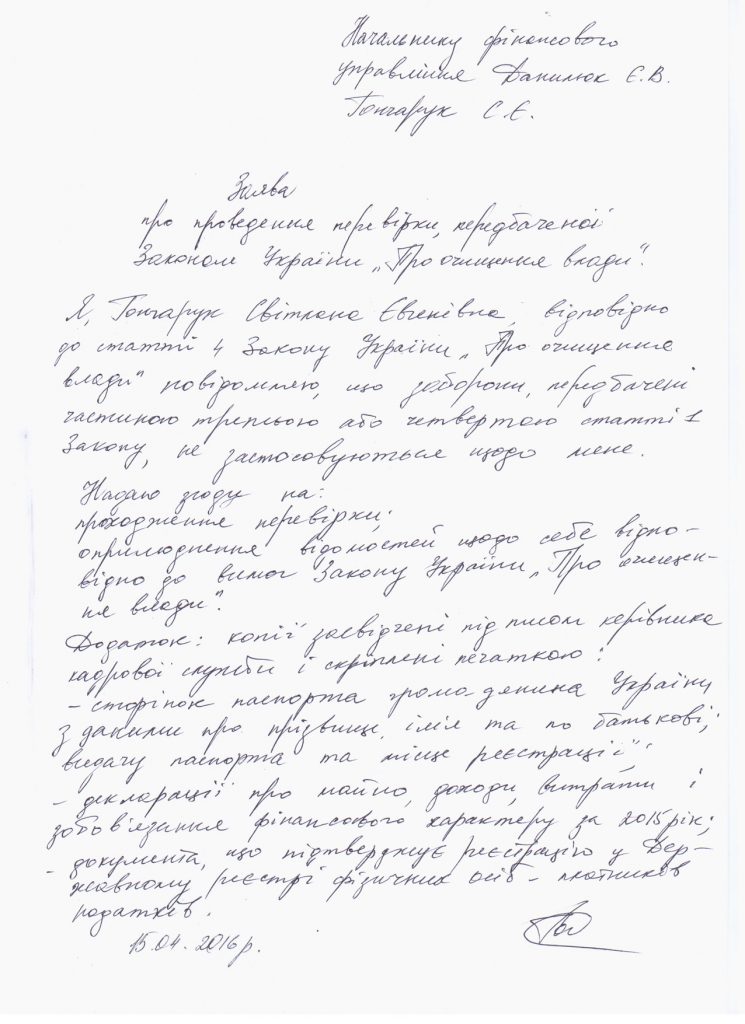 Начальнику фінансового
управління Данилюк Є.В.
Гончарук С.Є.
Заява
про проведення перевірки, передбаченої
Законом України „Про очищення влади".
Я, Гончарук Світлана Євгенівна, відповідно
до статті 4 Закону України „Про очищення
влади" повідомляю, що заборони, передбачені
частиною третьою або четвертою статті 1
Закону, не застосовуються щодо мене.
Надаю згоду на:
проходження перевірки;
оприлюднення відомостей щодо себе відпо-
відно до вимог Закону України „Про очищен-
ня влади".
Додаток: копії засвідчені підписом керівника
кадрової служби і скріплені печаткою:
- сторінок паспорта громадянина України
з даними про прізвище, ім'я та по батькові,
видачу паспорта та місце реєстрації;
- декларації про майно, доходи, витрати і
зобов'язання фінансового характеру за 2015 рік;
- документа, що підтверджує реєстрацію у Дер-
жавному реєстрі фізичних осіб - платників
податків.
15.04.2016 р.